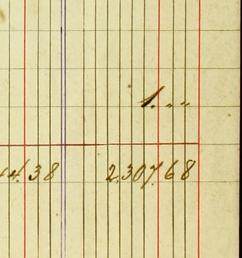 1. „
44.38 2.307.68